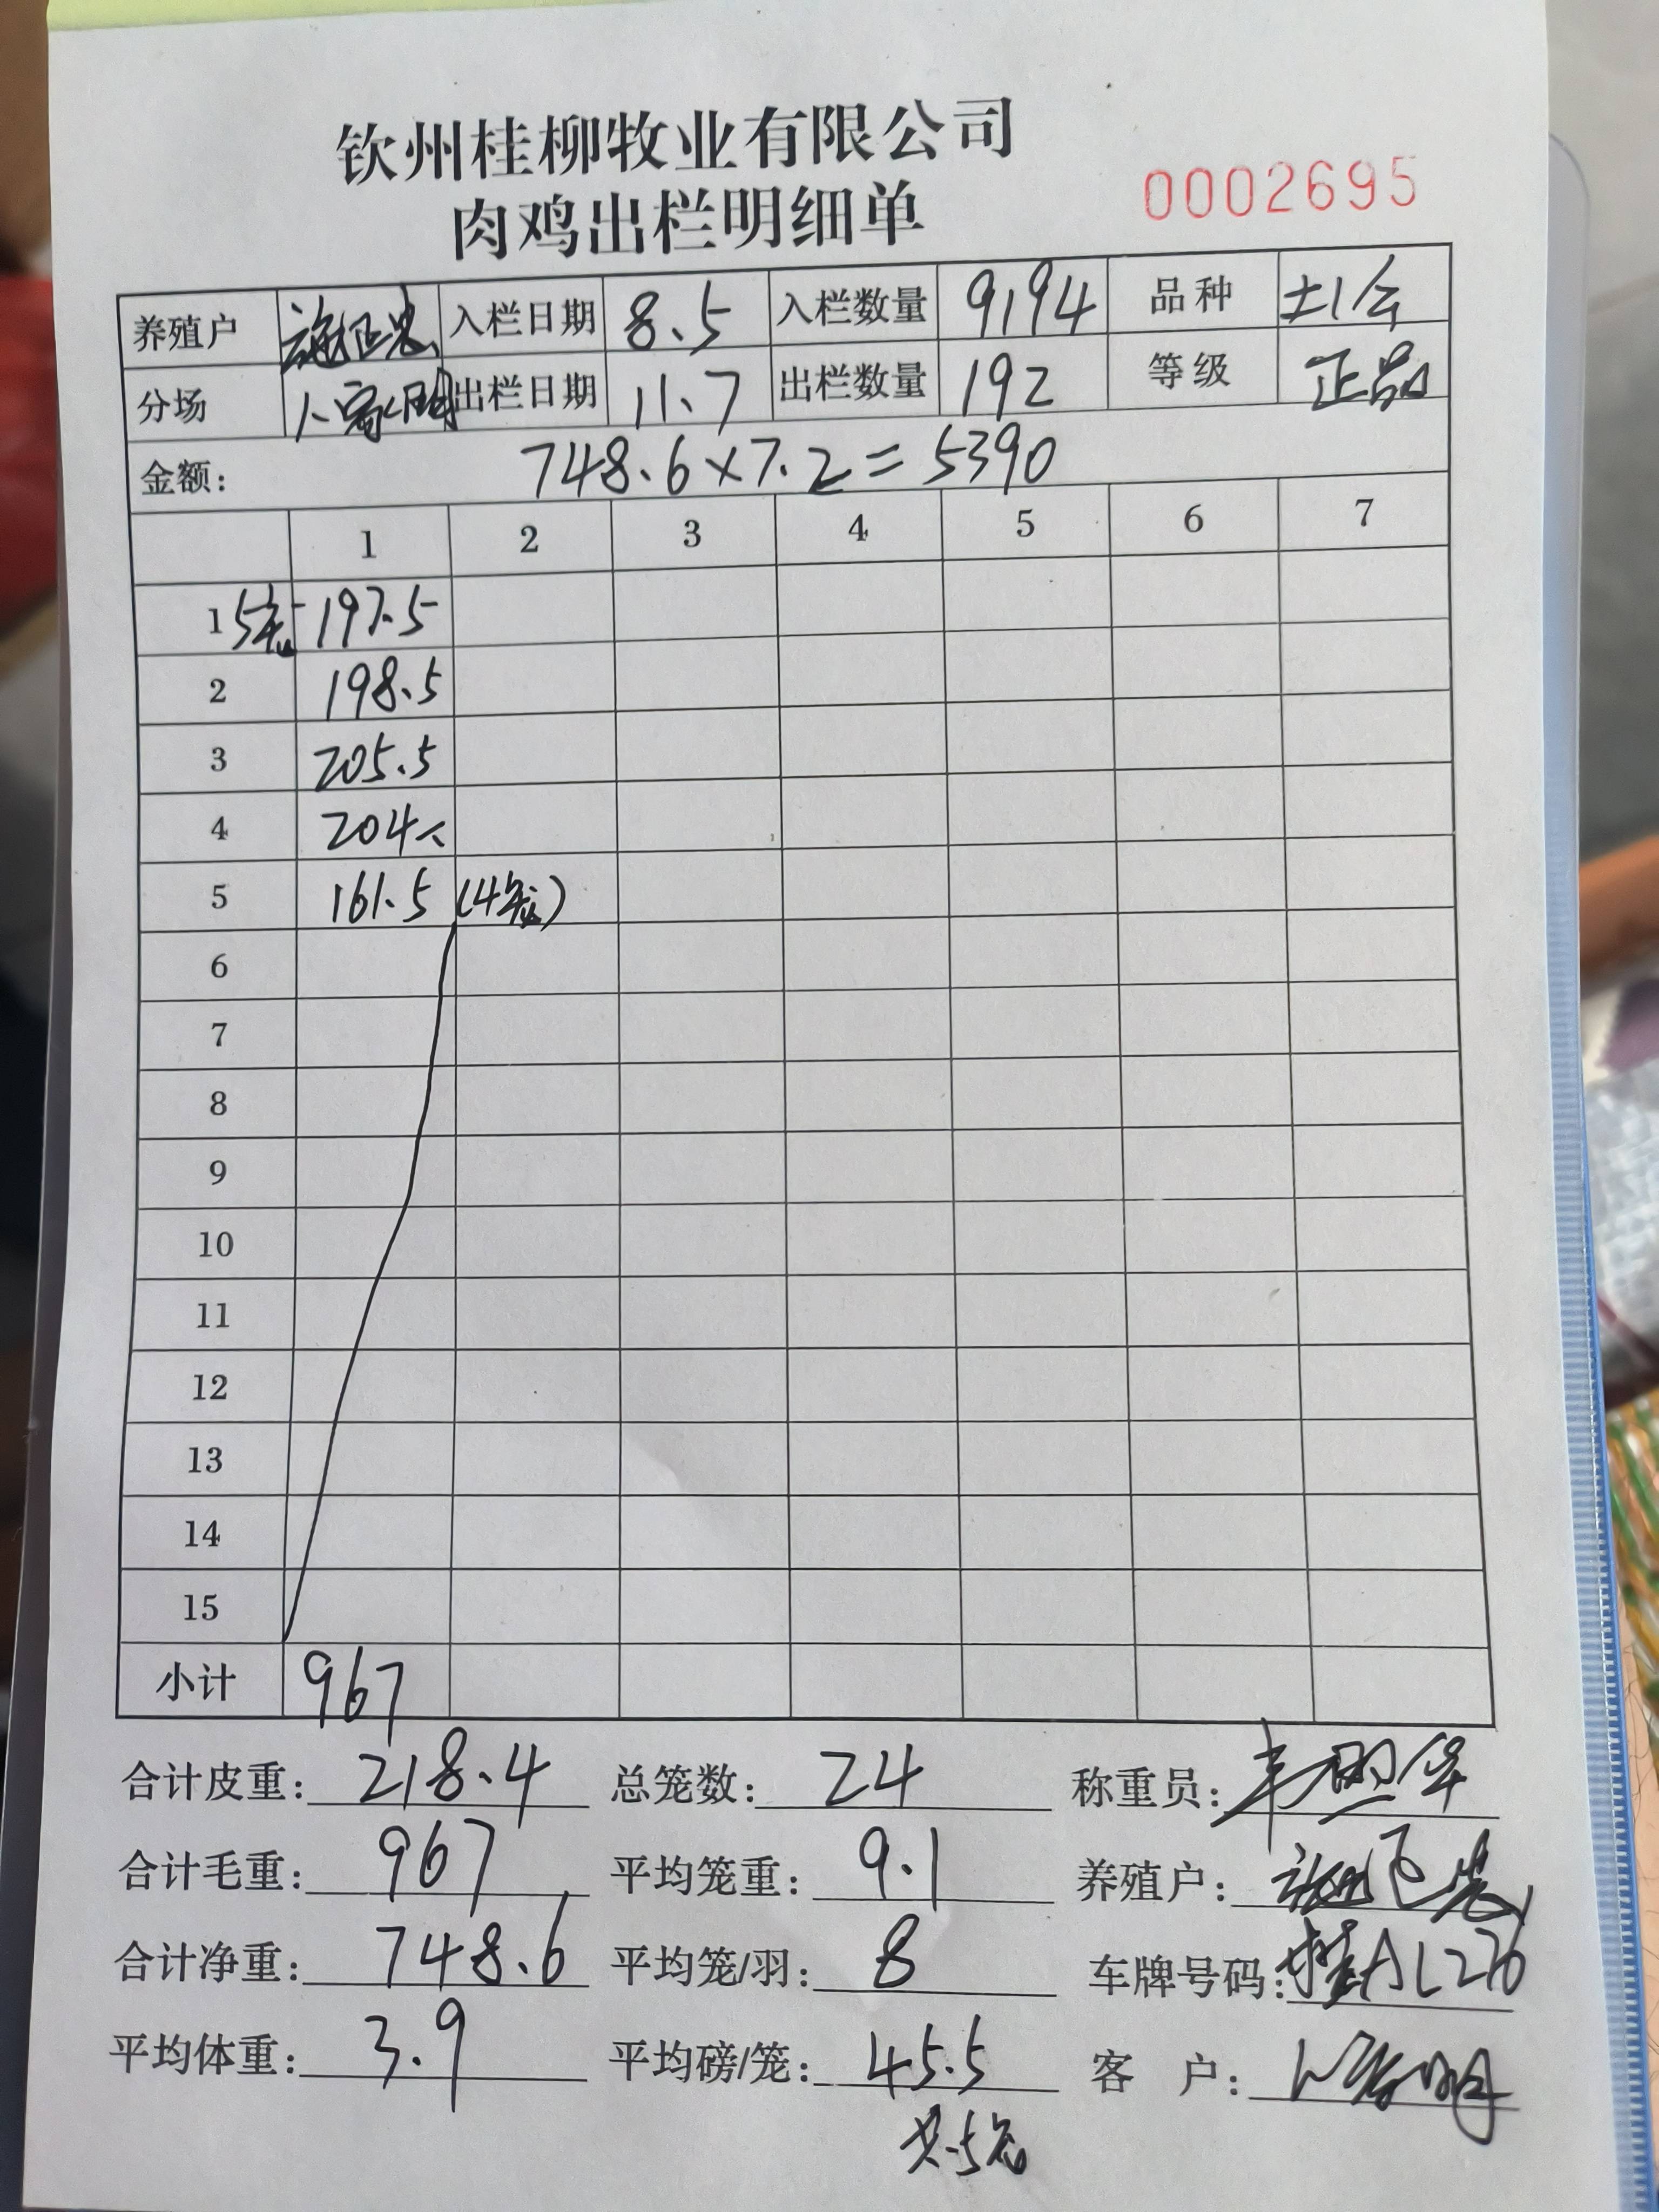 钦州桂柳牧业有限公司
肉鸡出栏明细单
0002695
养殖户 入栏日期 8.5 入栏数量 9194 品种 土1公
分场 出栏日期 11.7 出栏数量 192 等级 正品
金额: 748.6×7.2=5390
1 2 3 4 5 6 7
1 197.5
2 198.5
3 205.5
4 204
5 161.5
6
7
8
9
10
11
12
13
14
15
小计 967
合计皮重: 218.4 总笼数: 24 称重员:
合计毛重: 967 平均笼重: 9.1 养殖户:
合计净重: 748.6 平均笼/羽: 8 车牌号码:
平均体重: 3.9 平均磅/笼: 45.5 客 户: